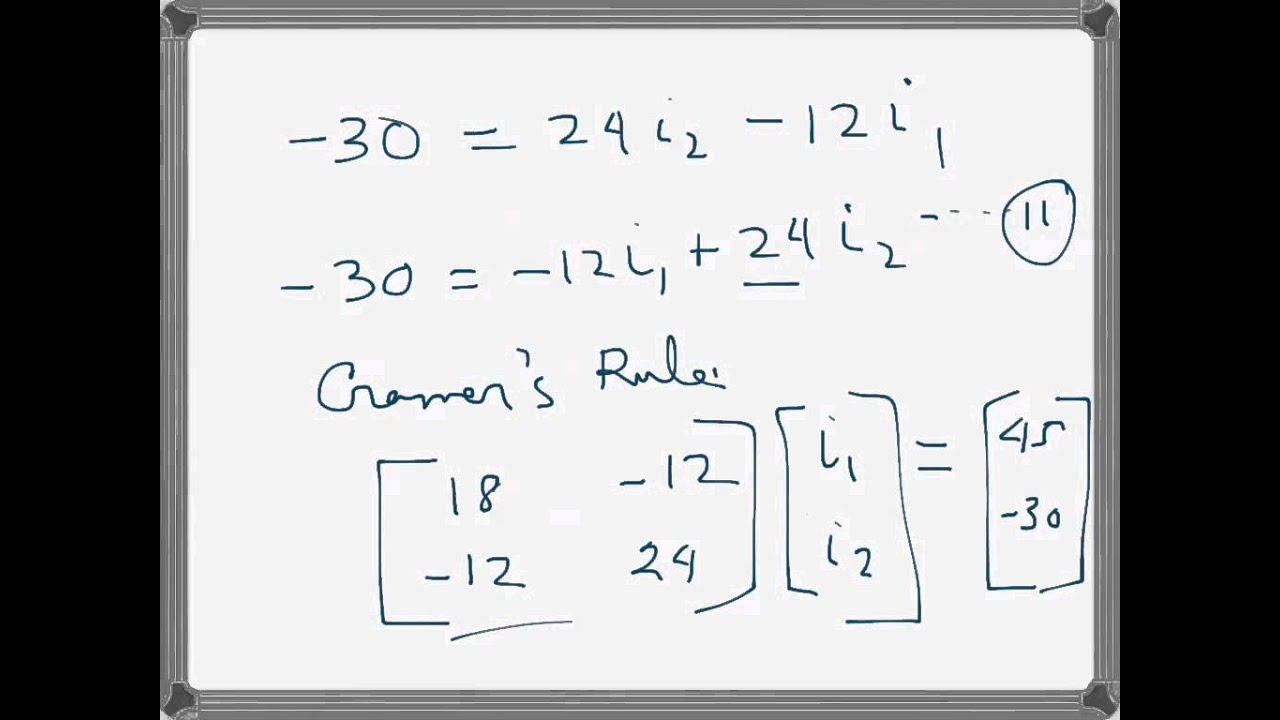 -30 = 24i₂ - 12i₁
-30 = -12i₁ + 24i₂ ----- (11)
Cramer's Rule
[18 -12] [i₁] = [45]
[-12 24] [i₂] [-30]